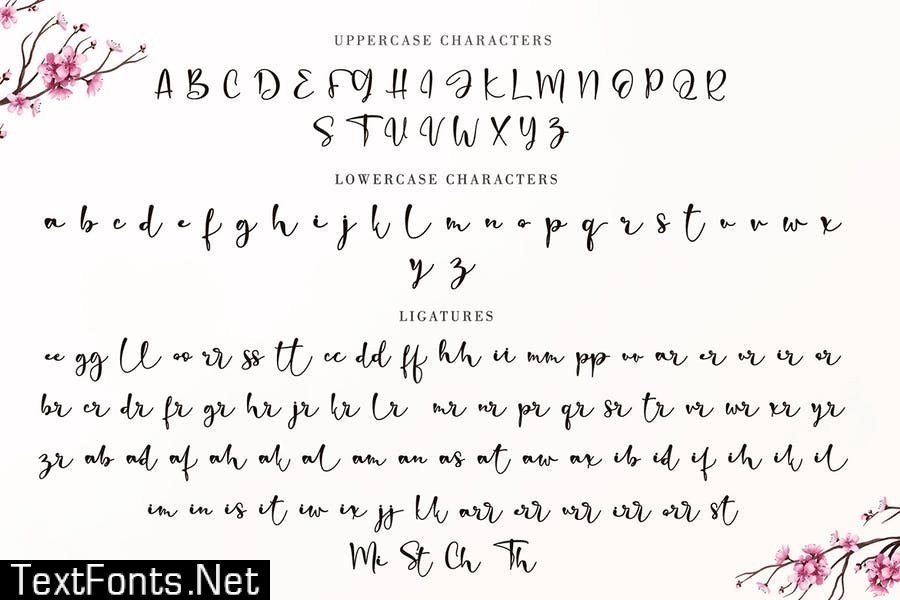 UPPERCASE CHARACTERS
A B C D E F G H I J K L M N O P Q R
S T U V W X Y Z
LOWERCASE CHARACTERS
a b c d e f g h i j k l m n o p q r s t u v w x
y z
LIGATURES
ee gg ll oo rr ss tt cc dd ff hh ii mm pp uu ar er ur ir or
br cr dr fr gr hr jr kr lr mr nr pr qr sr tr vr wr xr yr
zr ab ad af ah ak al am an as at aw ax ib id if ih ik il
im in is it iw ix jj kk arr err urr irr orr st
Mi St Ch Th
TextFonts.Net